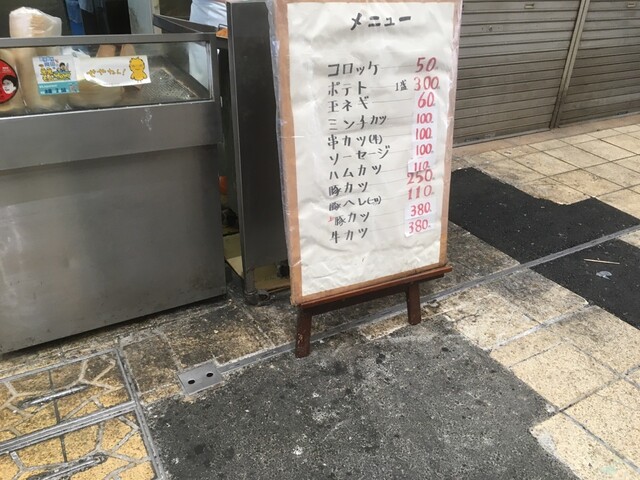 メニュー
コロッケ 50.
ポテト 1盛 300
玉ネギ 60.
ミンチカツ 100.
串カツ(牛) 100.
ソーセージ 100.
ハムカツ 110.
豚カツ 250.
豚ヘレ(一ツ) 110.
豚カツ 380.
牛カツ 380.
せやねん!